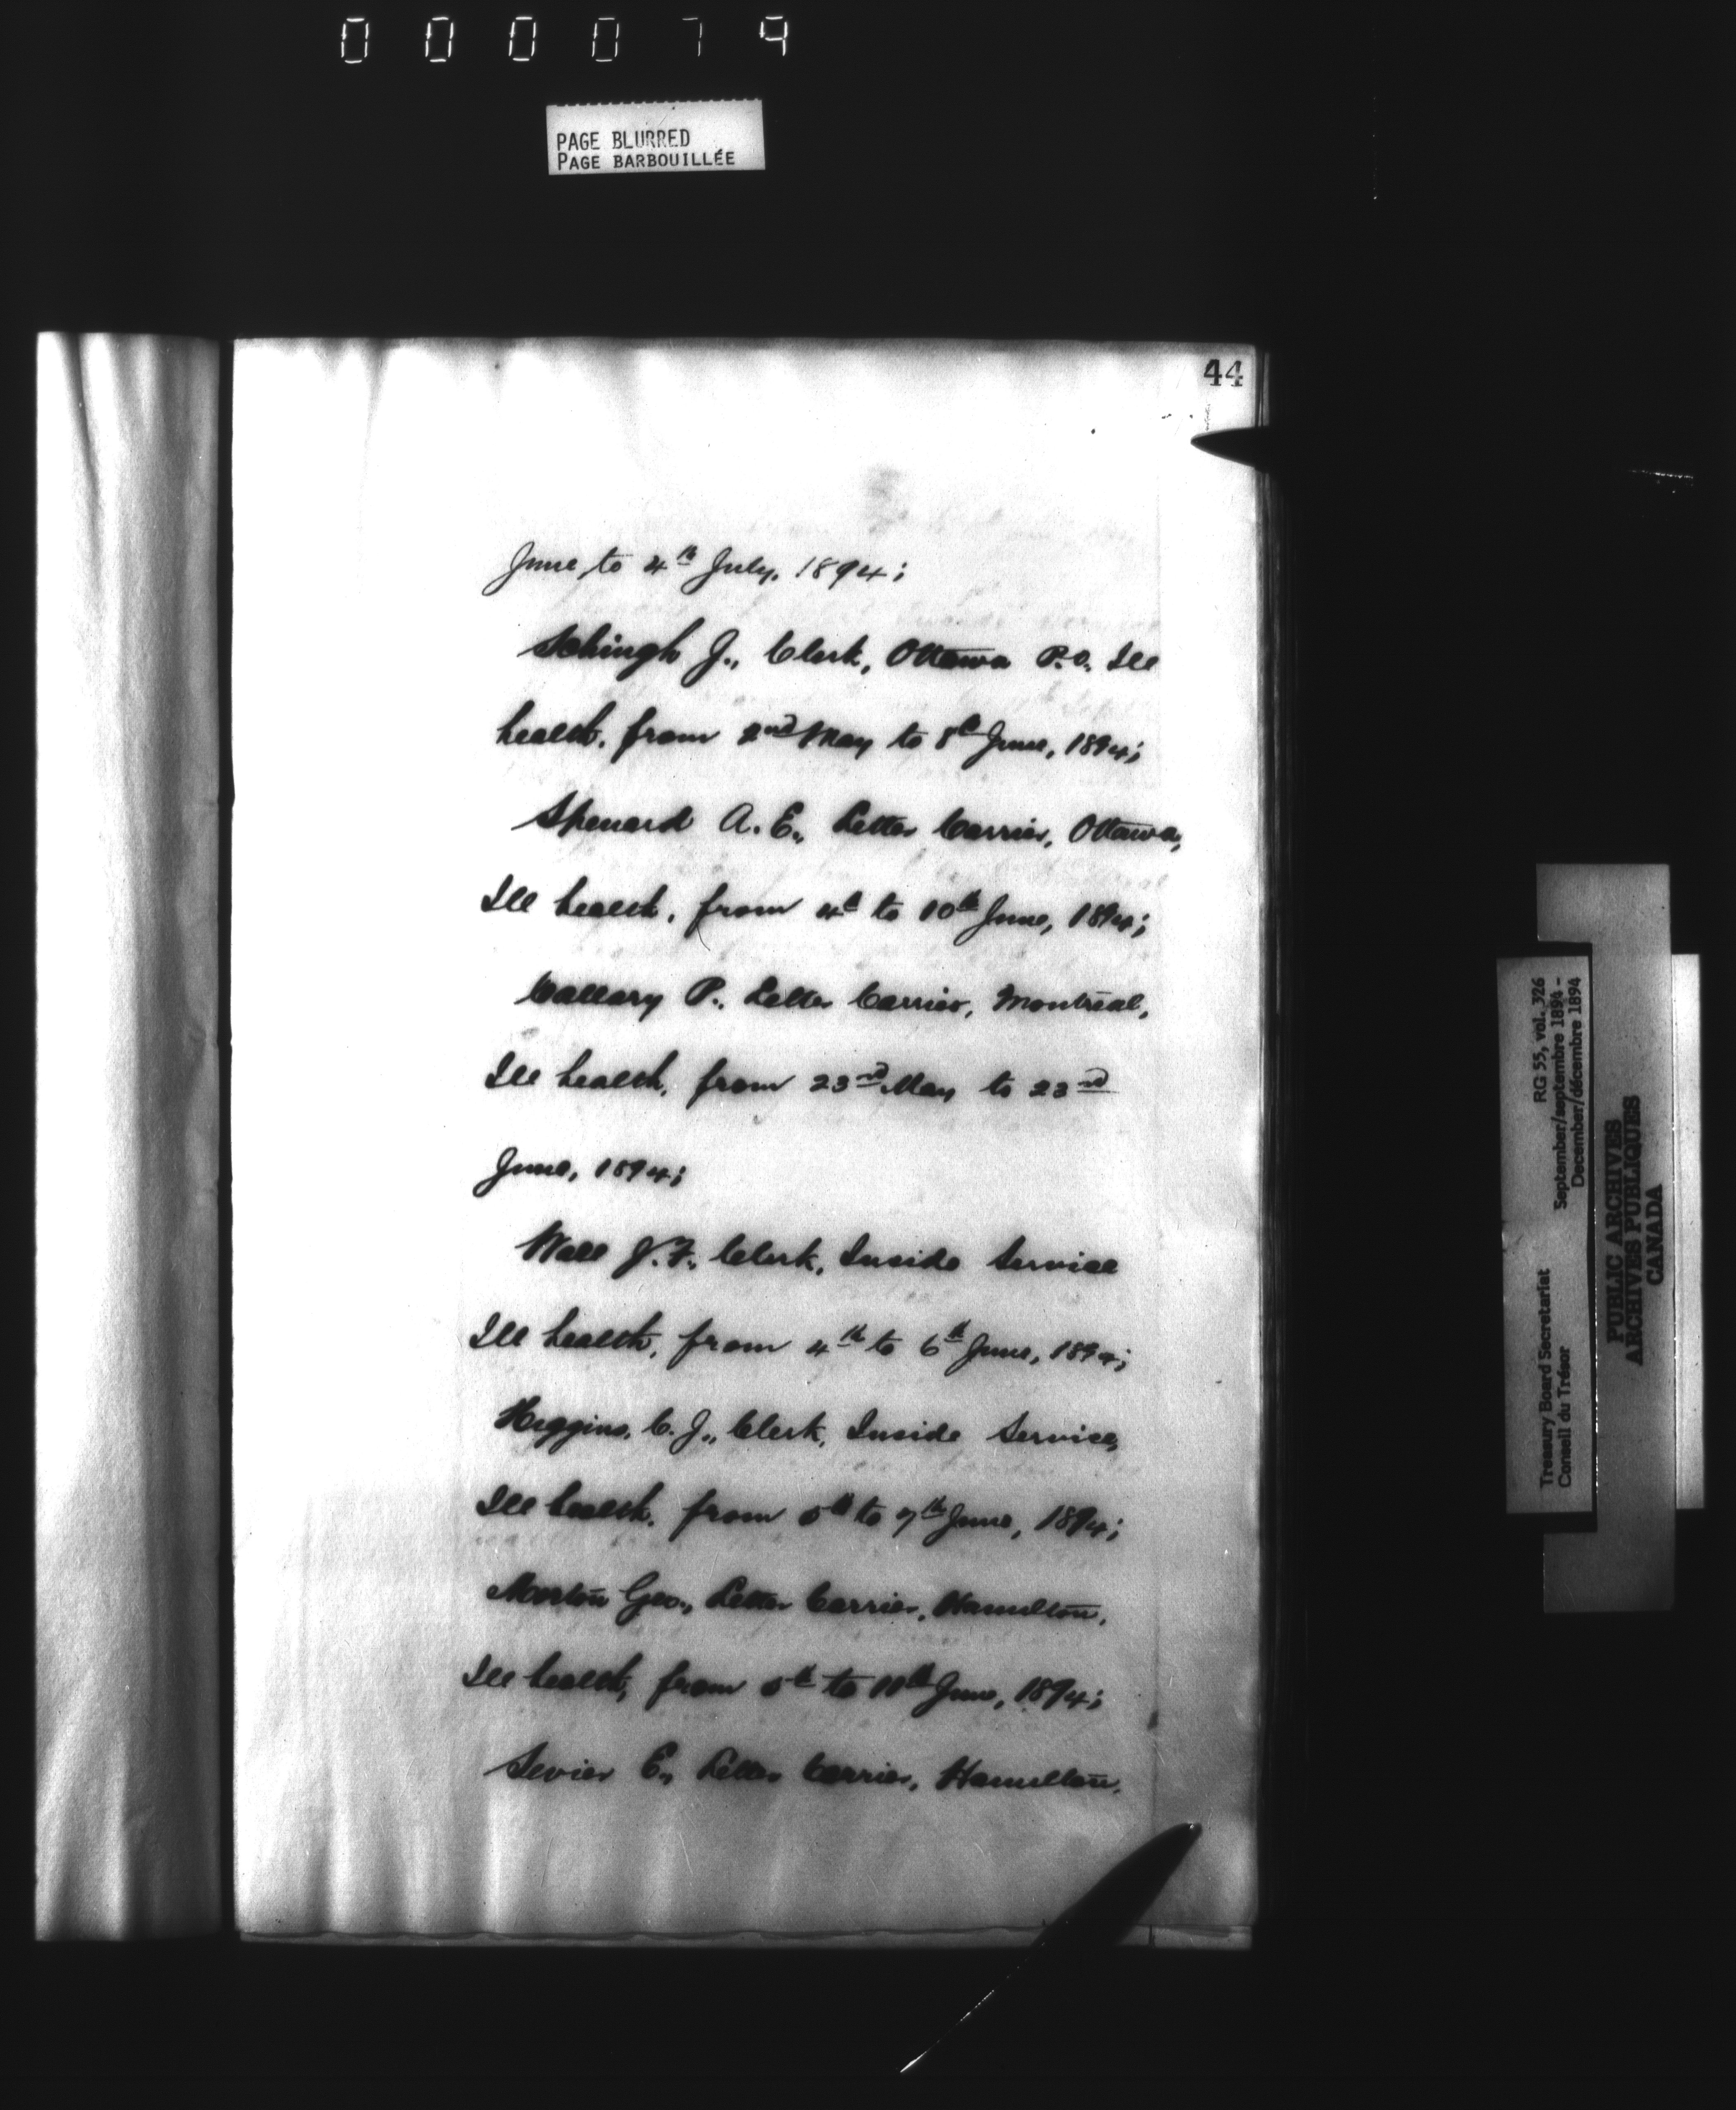 000079
PAGE BLURRED
PAGE BARBOUILLÉE
44
June to 4th July, 1894;
Schingh J., Clerk, Ottawa P.O. Ill
health, from 2nd May to 8th June, 1894;
Spenard A. E., Letter Carrier, Ottawa,
Ill health, from 4th to 10th June, 1894;
Callary P. Letter Carrier, Montreal,
Ill health, from 23rd May to 23rd
June, 1894;
Wall J. F. Clerk, Inside Service
Ill health, from 4th to 6th June, 1894;
Higgins, C. J., Clerk, Inside Service,
Ill health, from 5th to 7th June, 1894;
Morton Geo., Letter Carrier, Hamilton,
Ill health, from 5th to 11th June, 1894;
Sevier E, Letter Carrier, Hamilton,
Treasury Board Secretariat RG 55, vol. 326
Conseil du Trésor September/septembre 1894 -
December/décembre 1894
PUBLIC ARCHIVES
ARCHIVES PUBLIQUES
CANADA